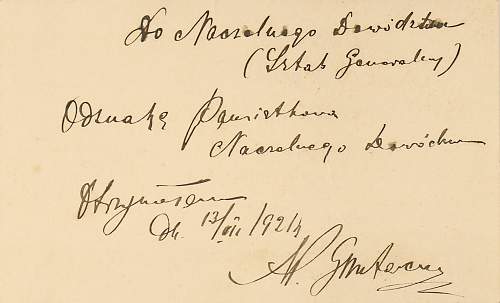 Do Naczelnego Dowództwa
(Sztab Generalny)
Odznakę Pamiątkową
Naczelnego Dowództwa
Otrzymałem
Dn. 13/VII/1924